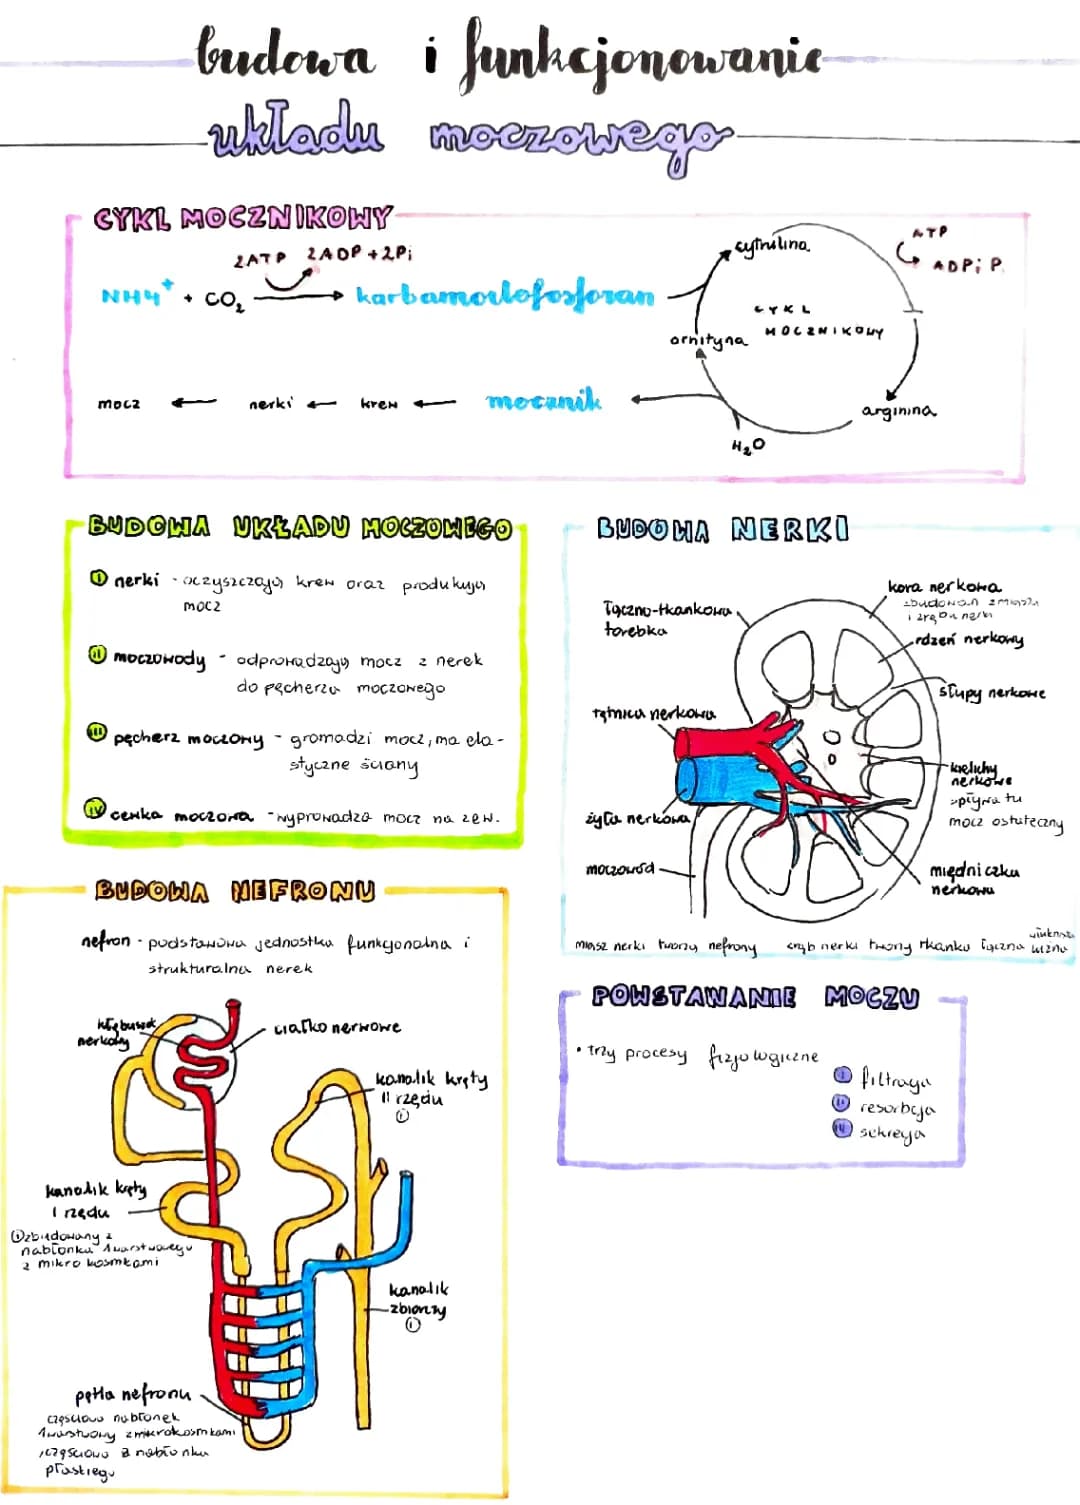 budowa i funkcjonowanie
układu moczowego
CYKL MOCZNIKOWY
2ATP 2ADP + 2Pi
NH4+ + CO2 → karbamoilofosforan
cytrulina
ATP
ADP i P.
CYKL
MOCZNIKOWY
ornityna
mocz ← nerki ← krew ← mocznik
arginina
H2O
BUDOWA UKŁADU MOCZOWEGO
I nerki - oczyszczają krew oraz produkują
mocz
II moczowody - odprowadzają mocz z nerek
do pęcherza moczowego
III pęcherz moczowy - gromadzi mocz, ma ela-
styczne ściany
IV cewka moczowa - wyprowadza mocz na zew.
BUDOWA NERKI
kora nerkowa
zbudowana z miąższu
i zrębu nerki
łączno-tkankowa
torebka
rdzeń nerkowy
słupy nerkowe
tętnica nerkowa
kielichy
nerkowe
spływa tu
mocz ostateczny
żyła nerkowa
moczowód
miedniczka
nerkowa
miąsz nerki tworzą nefrony zrąb nerki tworzy tkanka łączna luźna
BUDOWA NEFRONU
nefron - podstawowa jednostka funkcjonalna i
strukturalna nerek
kłębuszek
nerkowy
ciałko nerwowe
kanalik kręty
II rzędu
①
kanalik kręty
I rzędu
① zbudowany z
nabłonka 1warstwowego
z mikrokosmkami
kanalik
zbiorczy
①
pętla nefronu
częściowo nabłonek
1warstwowy z mikrokosmkami
, częściowo z nabłonka
płaskiego
POWSTAWANIE MOCZU
• trzy procesy fizjologiczne
I filtracja
II resorbcja
III sekrecja